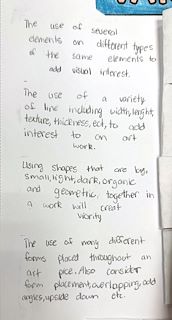 The use of several
elements on different types
of the same elements to
add visual interest.
The use of a variety
of line including width, lenght,
texture, thickness, ect, to add
interest to an art
work.
Using shapes that are big,
small, light, dark, organic
and geometric, together in
a work will creat
The use of many different
forms placed throughout an
art pice. Also consider
form placement, overlapping, add
angles, upside down etc.